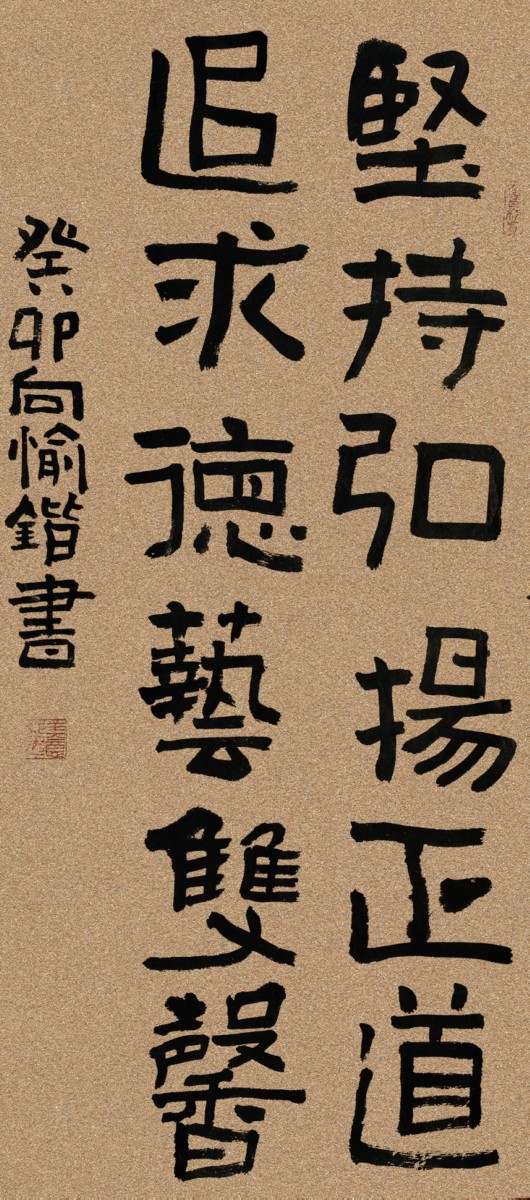 堅持弘揚正道
追求德藝雙馨
癸卯向愉鍇書